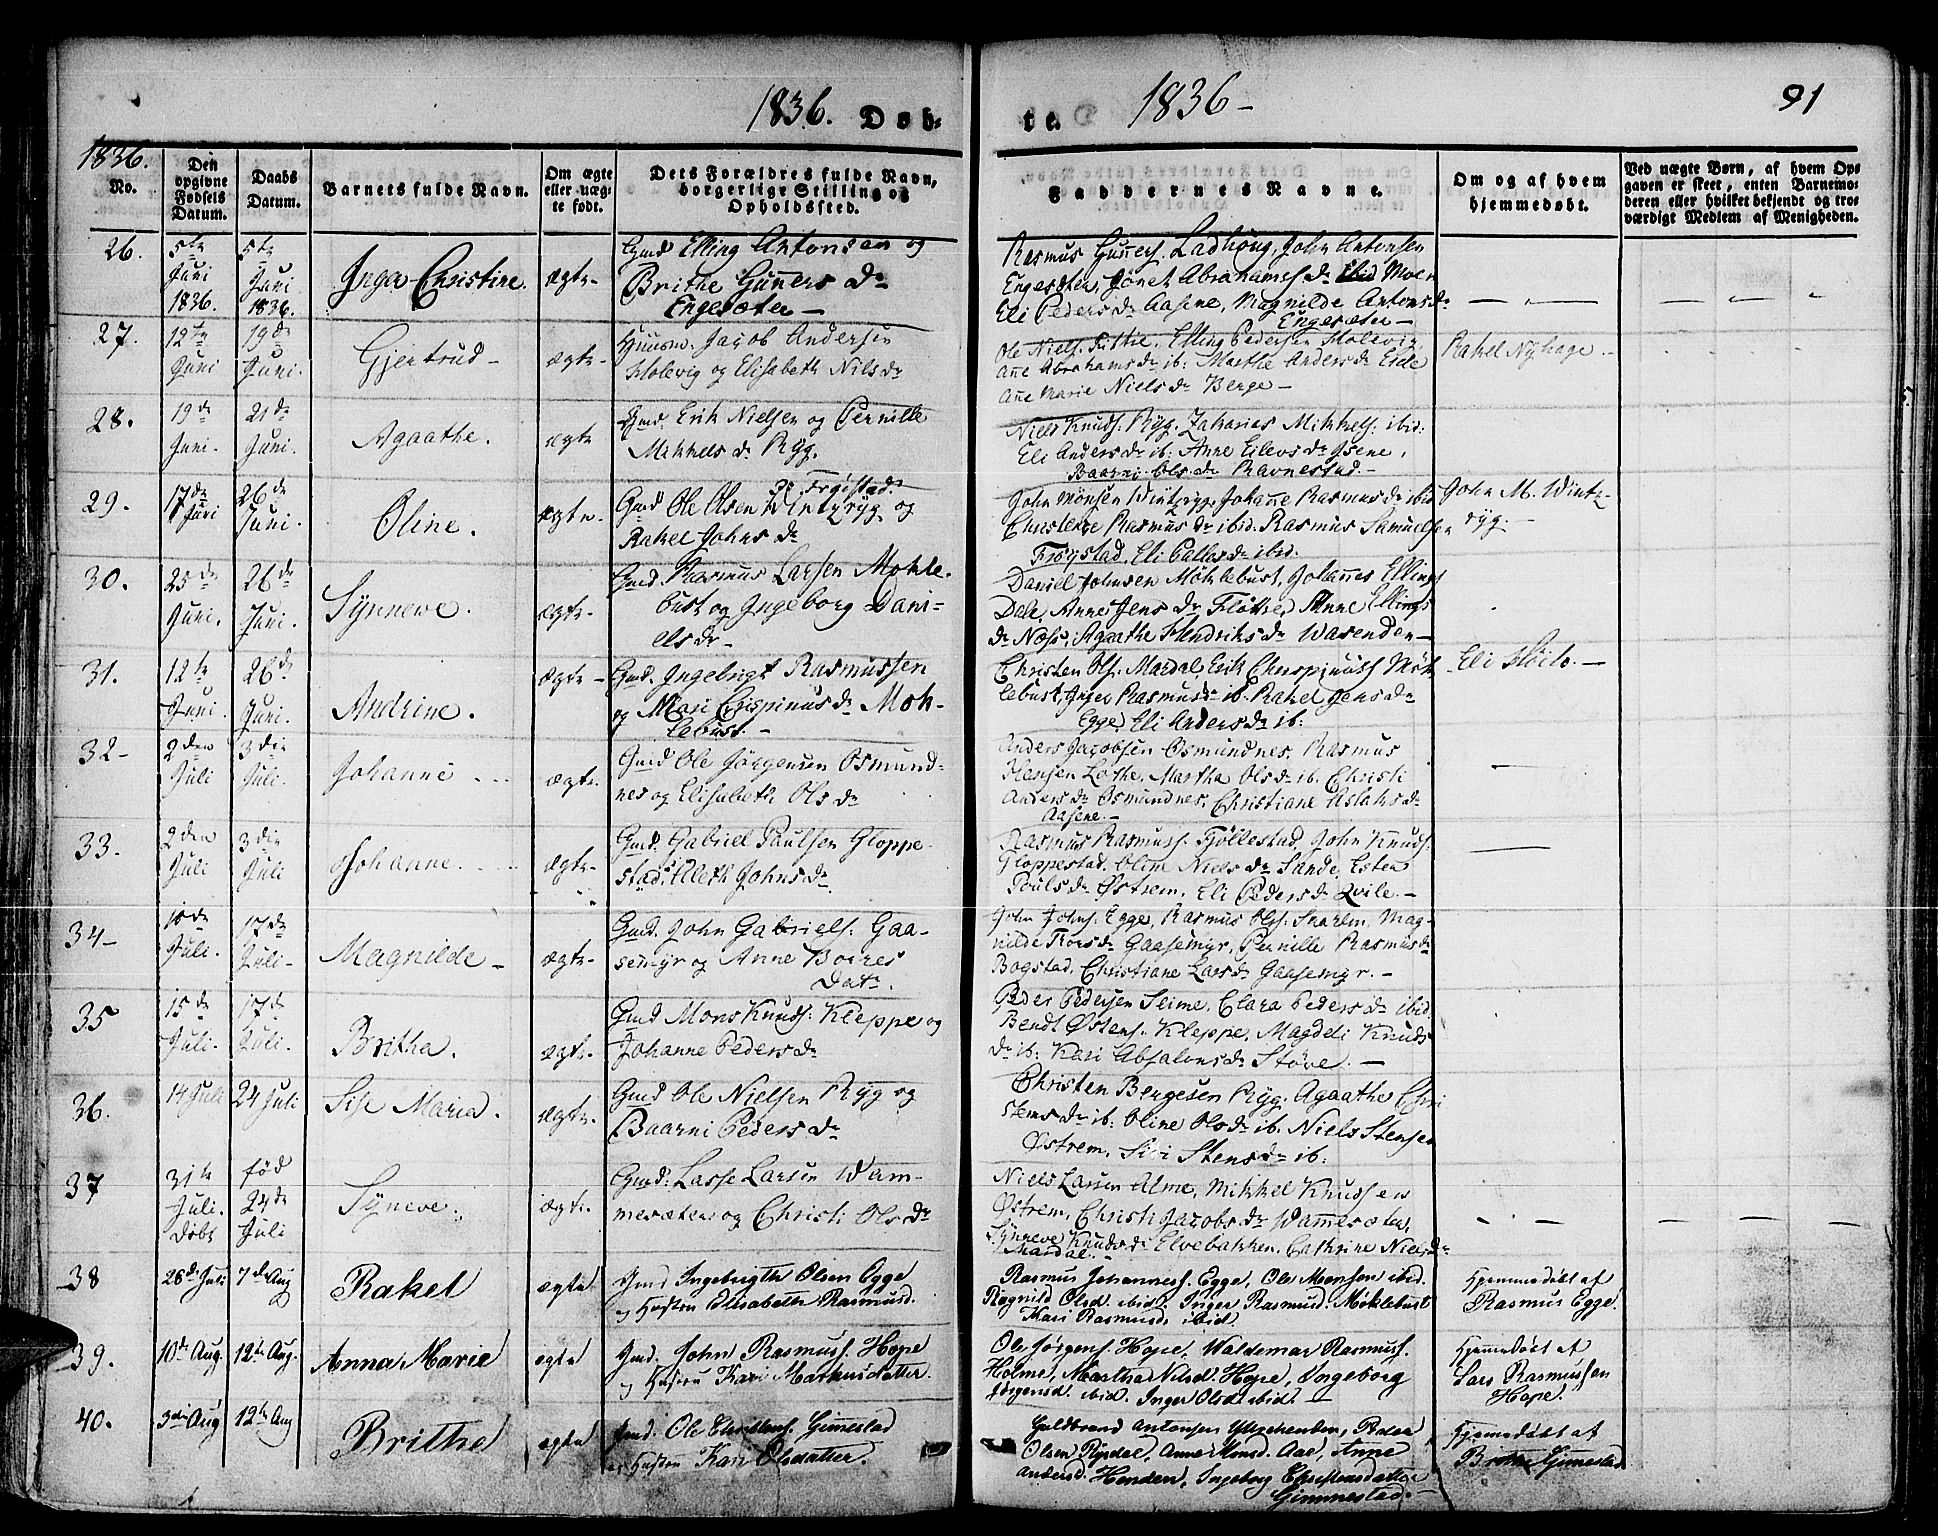 1836. Døb-
te. 1836- 91
1836.
No.
Den opgivne Fødsels Datum.
Daabs Datum.
Barnets fulde Navn.
Om ægte eller uægte født.
Dets Forældres fulde Navn, borgerlige Stilling og Opholdssted.
Faddernes Navne.
Om og af hvem hjemmedøbt.
Ved uægte Børn, af hvem Opgaven er skeet, enten Barnemoderen eller hvilket bekjendt og troværdigt Medlem af Menigheden.
26. 5te Juni 1836. 5te Juni 1836. Inger Christine. ægte-
Gmd Elling Antonsen og
Brithe Guners Dr
Engesæter-
Rasmus Guners. Ladhoug, John Antonsen
Engesæter, Jønet Abrahams dr ibid Moen
Eli Peders dr Aasene, Magnilde Antons dr
Engesæter-
27. 12te Juni 19de Juni. Gjertrud- ægte-
Huusm. Jacob Andersen
Holevig og Elisabeth Nils dr
Ole Niels. Fitthe, Elling Pedersen Holevig,
Ane Abrahams dr ib: Marthe Anders dr Eide
Ane Marie Niels dr Berge-
Rakel Nyhage.-
28. 19de Juni. 21de Juni. Agaathe. ægte
Gmd. Erik Nielsen og Pernille
Mikkels dr Ryg.
Niels Knuds. Ryg. Zakarias Mikkels: ibid:
Eli Anders dr ib: Anne Eilevs dr Isene,
Baarni Ols dr Ravnestad.-
29. 17de Juni 26de Juni. Oline. ægte.
Frøistad.
Gmd Ole Olsen Wintzryg og
Rakel Johns dr
John Monsen Wintzryg, Johane Rasmus dr ibid
Rasmus dr ibid. Rasmus Samuelsen
Frøystad. Eli Pallas dr ibid.
John M. Wintz-
ryg.-
30. 25de Juni. 26de Juni. Synneve. ægte-
Gmd. Rasmus Larsen Møkle-
bust og Ingeborg Dani-
els dr-
Daniel Johnsen Møklebust, Johannes Ellings
Dale, Anne Jens dr Fløtre, Anne Ellings
dr Næss, Agaathe Hendriks dr Warenden-
31. 12te Juni. 26de Juni. Andrine. ægte-
Gmd. Ingebrigt Rasmussen
og Mari Crispinus dr Møk-
lebust.-
Christen Ols. Mardal, Erik Møk
lebust, Inger Rasmus dr ib. Rakel Jens dr
Egge, Eli Anders dr ib:
Eli Hoilo.-
32- 2den Juli 3die Juli. Johanne ægte.
Gmd Ole Jørgensen Osmund-
nes og Elisabeth Ols dr
Anders Jacobsen Osmundnes. Rasmus
Hansen Lothe. Martha Ols dr ib. Christi
Anders dr Osmundnes, Christiane Aslaks dr
Aasene.-
33. 2den Juli 3die Juli Johanne. ægte-
Gmd. Gabriel Paulsen Gloppe-
stad, Johns dr
Rasmus Rasmuss. Fjøllestad, John Knuds.
Gloppestad, Oline Niels dr Sande, Ester
Pouls dr Østrem, Eli Peders dr Qvile.-
34- 10de Juli. 17de Juli- Magnilde- ægte-
Gmd. John Gabriels. Gaa-
semyr og Anne
Datr.
John Johns. Egge, Rasmus Ols. Mag-
nilde Tors dr Gaasemyr, Pernille Rasmus dr
Bogstad, Christiane Lars dr Gaasemyr.-
35 15de Juli. 17de Juli. Britha. ægte-
Gmd Mons Knuds. Kleppe og
Johanne Peders dr
Peder Pedersen Seime, Clara Peders dr ibid.
Bendt Østens. Kleppe, Magdeli Knuds
dr ib: Kari Absalons dr Støve.-
36. 14 Juli 24 Juli Sise Maria. ægte.
Gmd Ole Nielsen Ryg og
Baarni Peders dr
Christen Bergesen Ryg, Agaathe Chri
stens dr ib: Oline Ols dr ib. Niels Stensen
Østrem, Sivi Stens dr ib:
37 31te Juli. Døbt født 24de Juli Syneve. ægte.
Gmd: Lasse Larsen Wam-
mesæter og Christi Ols dr
Niels Larsen Alme, Mikkel Knudsen
Østrem, Christi Jacobs dr Wammesæter,
Synneve Knuds dr Elvebakken, Cathrine Niels dr
Mardal.-
38 28de Juli 7de Aug Rakel ægte
Gmd Ingebrigth Olsen Egge
og Hustru Elisabeth Rasmusd.
Rasmus Johanness. Egge, Ole Monsen ibid.
Ragnild Olsd ibid. Inger Rasmusd. Møklebust
Kari Rasmusd. ibid
Hjemmedøbt af
Rasmus Egge.
39. 10de Aug. 12te Aug. Anna Marie ægte
Gmd. John Rasmuss. Hope
og Hustru Kari Markusdatter.
Ole Jørgens. Hope, Waldemar Rasmuss.
Holme, Martha Nilsd. Hope, Ingeborg
Jørgensd. ibid. Inger Olsd ibid.
Hjemmedøbt af
Lars Rasmussen
Hope.
40. 3die Aug 12te Aug Brithe ægte
Gmd. Ole Christens. Gimmestad
og Hustru Kari Olsdatter.
Guldbrand Antonsen Ytrehenden, Peder
Olsen Rysdal, Anne Monsd. Aae, Anne
Andersd. Henden, Ingeborg Christensdatter
Gimmestad.-
Hjemmedøbt af
Brithe Gimmestad.